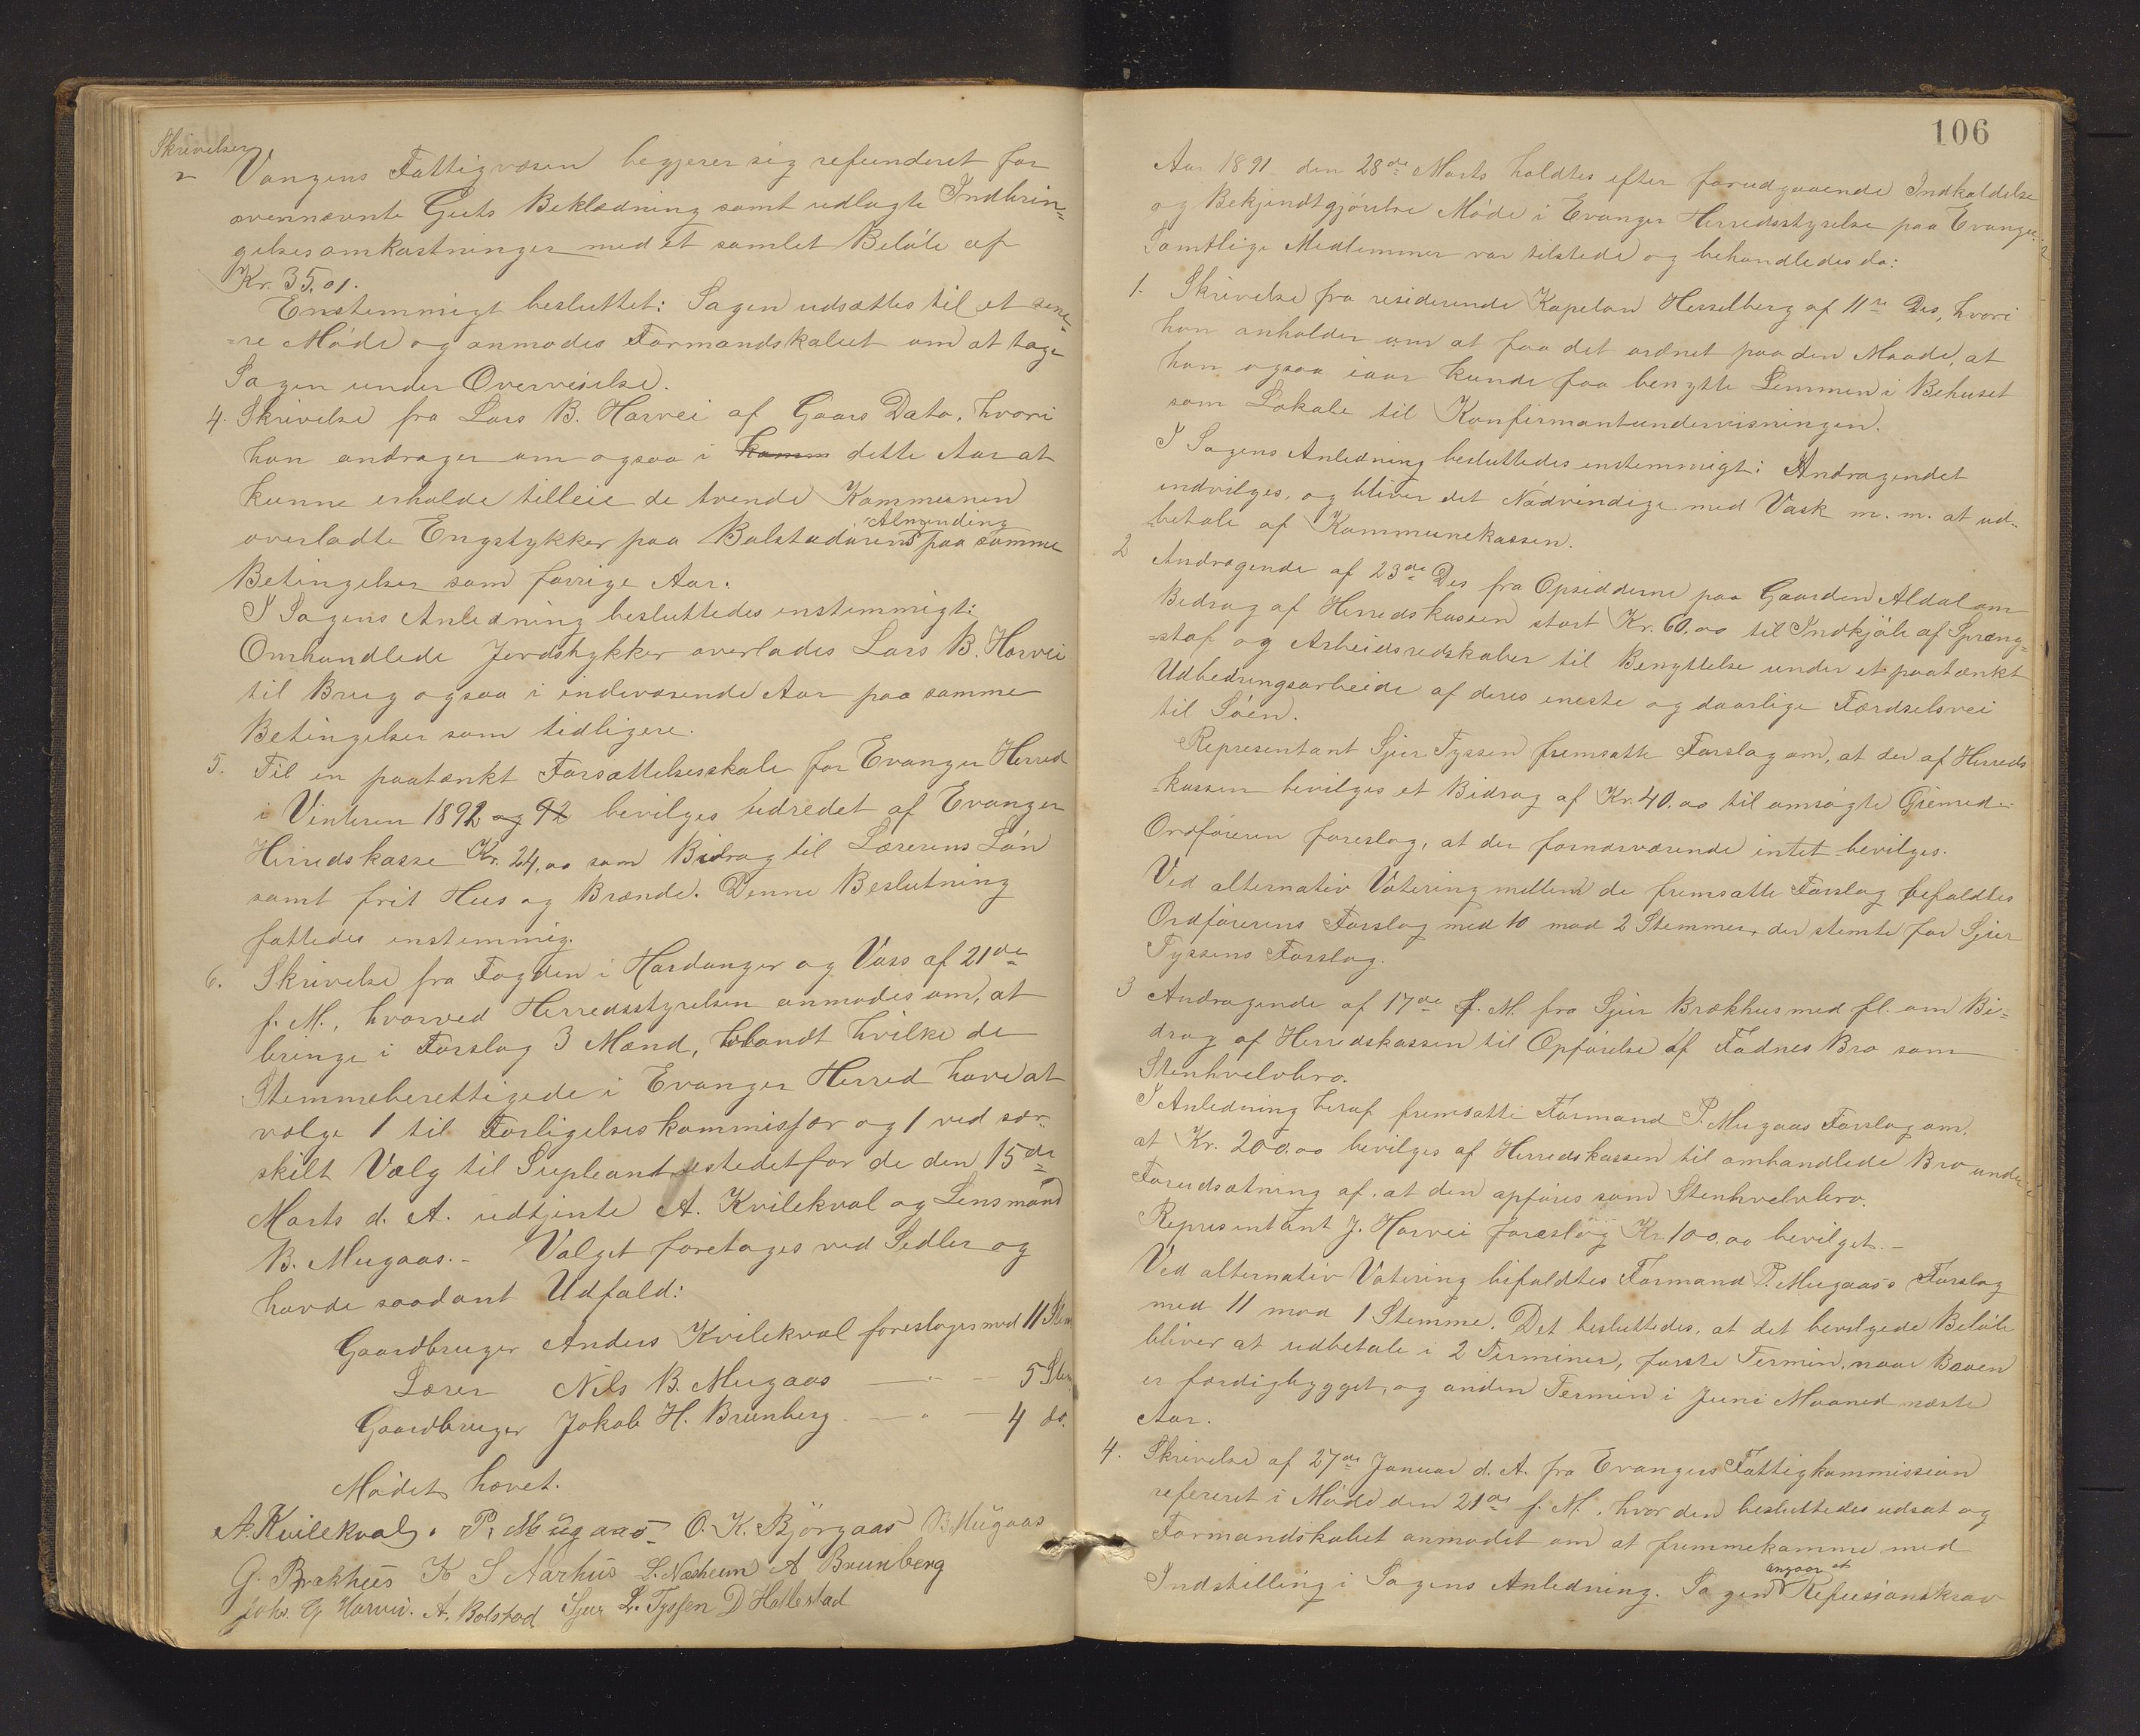 Skrivelser
r Vangens Fattigvæsen begjerer sig refunderet for
ovennævnte Guts Beklædning samt udlagte Indbrin-
gelsesomkostninger med et samlet Beløb af
Kr. 35,01.
Enstemmigt besluttet: Sagen udsættes til et sene-
-re Møde og anmodes Formandskabet om at tage
Sagen under Overveielse.
4. Skrivelse fra Lars B. Horvei af Gaars Dato, hvori
han andrager om ogsaa i dette Aar at
kunne erholde tilleie de tvende Kommunen
overladte Engstykker paa Bolstadørens Almending paa samme
Betingelser som forrige Aar.
I Sagens Anledning besluttedes enstemmigt:
Omhandlede Jordstykker overlades Lars B. Horvei
til Brug ogsaa i indeværende Aar paa samme
Betingelser som tidligere.
5. Til en paatænkt Forsættelsesskole for Evanger Herred
i Vinteren 1892 og 92 bevilges udredet af Evanger
Herredskasse Kr. 24,00 som Bidrag til Lærerens Løn
samt frit Hus og Brænde. Denne Beslutning
fattedes enstemmig.
6. Skrivelse fra Fogden i Hardanger og Voss af 21de
f. M., hvorved Herredsstyrelsen anmodes om, at
bringe i Forslag 3 Mænd, blandt hvilke de
Stemmeberettigede i Evanger Herred have at
vælge 1 til Forligelseskommissær og 1 ved sær-
skilt Valg til Supleant istedetfor de den 15de
Marts d. A. udtjente A. Kvilekval og Lensmand
B. Mugaas.- Valget foretages ved Sedler og
havde saadant Udfald:
Gaardbruger Anders Kvilekval foreslages med 11 Stem.
Lærer Nils B. Mugaas — " — 5 Stem
Gaardbruger Jokob H. Brunberg — " — 4 do.
Mødet hævet.
A. Kvilekval. P. Mugaas O. K. Björgaas B. Mugaas
G. Brækhus K S Aarhus L. Næsheim A Brunberg
Johs. G Horvei. A. Bolstad Sjur L. Tyssen D Hallestad
106
Aar 1891 den 28de Marts holdtes efter forudgaaende Indkaldelse
og Bekjendtgjørelse Møde i Evanger Herredsstyrelse paa Evanger.
Samtlige Medlemmer var tilstede og behandledes da:
1. Skrivelse fra residerende Kapelan Hesselberg af 11te Ds, hvori
han anholder om at faa det ordnet paa den Maade, at
han ogsaa iaar kunde faa benytte Lemmen i Behuset
som Lokale til Konfirmantundervisningen.
I Sagens Anledning besluttedes enstemmigt: Andragendet
indvilges, og bliver det Nødvendige med Vask m. m. at ud-
betale af Kommunekassen.
2 Andragende af 23de Ds fra Opsidderne paa Gaarden Aldal om
Bidrag af Herredskassen stort Kr. 60,00 til Indkjøb af Spræng-
-stof og Arbeidsredskaber til Benyttelse under et paatænkt
Udbedringsarbeide af deres eneste og daarlige Færdselsvei
til Søen.
Representant Sjur Tyssen fremsatte Forslag om, at der af Herreds
kassen bevilges et Bidrag af Kr. 40.00 til omsøgte Øiemed.
Ordføreren foreslog, at der fornærværende intet bevilges.
Ved alternativ Votering mellem de fremsatte Forslag befaldtes
Ordførerens Forslag med 10 mod 2 Stemmer, der stemte for Sjur
Tyssens Forslag.
3 Andragende af 17de f. M. fra Sjur Brækhus med fl. om Bi-
drag af Herredskassen til Opførelse af Fadnes Bro som
Stenhvelvbro.
I Anledning heraf fremsatte Formand P. Mugaas Forslag om,
at Kr. 200,00 bevilges af Herredskassen til omhandlede Bro under
Forudsætning af, at den opføres som Stenhvelvbro.
Representant J. Horvei foreslog Kr 100,00 bevilget.-
Ved alternativ Votering bifaldtes Formand P. Mugaas's Forslag
med 11 mod 1 Stemme. Det besluttedes, at det bevilgede Beløb
bliver at udbetale i 2 Terminer, første Termin, naar Broen
er færdigbygget, og anden Termin i Juni Maaned næste
Aar.
4. Skrivelse af 27de Januar d. A. fra Evangers Fattigkommission
refereret i Møde den 21de f. M., hvor den besluttedes udsat og
Formandskabet anmodet om at fremmekomme med
Indstilling i Sagens Anledning. Sagen angaar et Refusionskrav